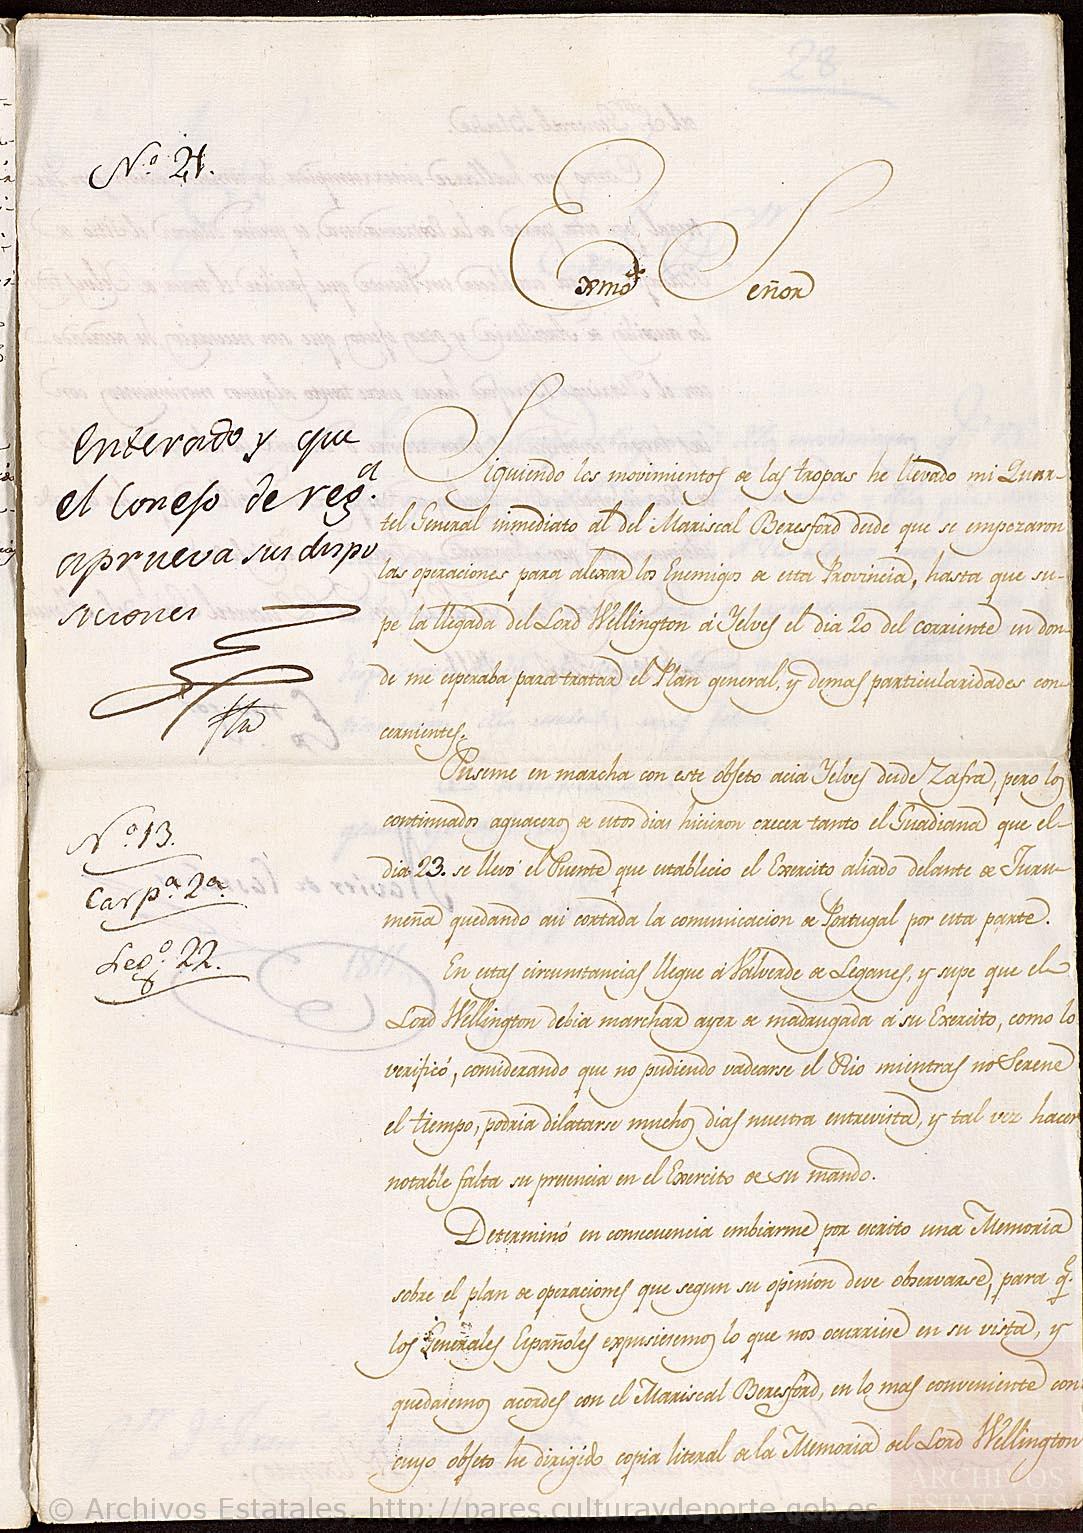 28
N.º 21.
Exmõ Señor
Enterado y que
el Consejo de reg.ª
aprueva sus dispo
siciones
Siguiendo los movimientos de las tropas he llevado mi Quar-
tel General inmediato al del Mariscal Beresford desde que se empezaron
las operaciones para alexar los Enemigos de esta Provincia, hasta que su-
pe la llegada del Lord Wellington á Yelves el dia 20 del corriente en don-
de me esperaba para tratar el Plan general, y demas particularidades con-
cernientes.
Puseme en marcha con este objeto acia Yelves desde Zafra, pero los
continuados aguaceros de estos dias hicieron crecer tanto el Guadiana que el
dia 23. se llevó el Puente que establecio el Exercito aliado delante de Juru-
meña quedando asi cortada la comunicacion de Portugal por esta parte.
En estas circunstancias llegue á Valverde de Leganes, y supe que el
Lord Wellington debia marchar ayer de madrugada á su Exercito, como lo
verificó, considerando que no pudiendo vadearse el Rio mientras no Serene
el tiempo, podria dilatarse muchos dias nuestra entrevista, y tal vez hacer
notable falta su presencia en el Exercito de su mando.
Determinó en consecuencia embiarme por escrito una Memoria
sobre el plan de operaciones que segun su opinion deve observarse, para q.e
los Generales Españoles expusiesemos lo que nos ocurriese en su vista, y
quedasemos acordes con el Mariscal Beresford, en lo mas conveniente con
cuyo objeto he dirigido copia literal de la Memoria del Lord Wellington
N.º 13.
Carp.ª 2ª
Leg.º 22.
© Archivos Estatales, http://pares.culturaydeporte.gob.es
ARCHIVOS
ESTATALES